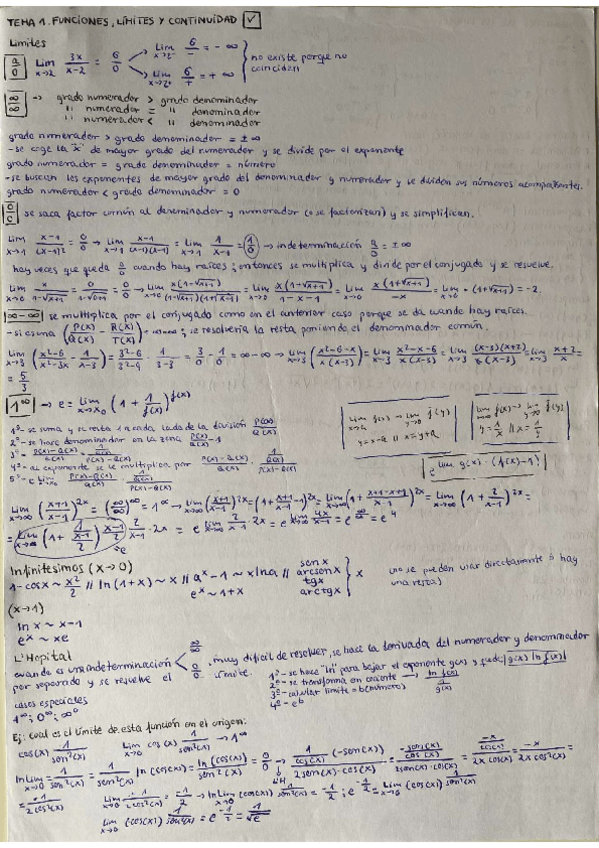 TEMA 1. FUNCIONES, LÍMITES Y CONTINUIDAD ✓
Límites
a/0 Lim x→2 3x/x-2 = 6/0 → Lim x→2⁻ 6/- = -∞
→ Lim x→2⁺ 6/+ = +∞ } no existe porque no coinciden
∞/∞ → grado numerador > grado denominador
" numerador = " denominador
" numerador < " denominador
grado numerador > grado denominador = ±∞
- se coge la x de mayor grado del numerador y se divide por el exponente
grado numerador = grado denominador = número
- se buscan los exponentes de mayor grado del denominador y numerador y se dividen sus números acompañantes.
grado numerador < grado denominador = 0
0/0 se saca factor común al denominador y numerador (o se factorizan) y se simplifican.
Lim x→1 x-1/(x-1)² = 0/0 → Lim x→1 x-1/(x-1)(x-1) = Lim x→1 1/x-1 = 1/0 → indeterminación a/0 = ±∞
hay veces que queda 0/0 cuando hay raíces; entonces se multiplica y divide por el conjugado y se resuelve.
Lim x→0 x/1-√x+1 = 0/1-√0+1 = 0/0 → Lim x→0 x(1+√x+1)/(1-√x+1)(1+√x+1) = Lim x→0 x(1+√x+1)/1-x-1 = Lim x→0 x(1+√x+1)/-x = Lim x→0 -(1+√x+1) = -2
∞-∞ se multiplica por el conjugado como en el anterior caso porque se da cuando hay raíces.
- si es una (P(x)/Q(x) - R(x)/T(x)) se resolvería la resta poniendo el denominador común.
Lim x→3 (x²-6/x²-3x - 1/x-3) = 3²-6/3²-9 - 1/3-3 = 3/0 - 1/0 = ∞-∞ → Lim x→3 (x²-6-x/x(x-3)) = Lim x→3 x²-x-6/x(x-3) = Lim x→3 (x-3)(x+2)/x(x-3) = Lim x→3 x+2/x =
= 5/3
1^∞ → e = Lim x→x₀ (1 + 1/f(x))^f(x)
1º - se suma y se resta 1 a cada lado de la división P(x)/Q(x)
2º - se hace denominador en la zona P(x)/Q(x) - 1
4º - al exponente se le multiplica por
e^Lim g(x)·(f(x)-1)
Lim x→∞ (x+1/x-1)^2x = (∞/∞)^∞ = 1^∞ → Lim x→∞ (x+1/x-1)^2x = (1 + x+1/x-1 - 1)^2x = Lim x→∞ (1 + x+1-x+1/x-1)^2x = Lim x→∞ (1 + 2/x-1)^2x =
= Lim x→∞ (1 + 1/x-1/2)^x-1/2 · 2/x-1 · 2x = e^Lim x→∞ 2/x-1 · 2x = e^Lim x→∞ 4x/x-1 = e^∞/∞ = e⁴
Infinitésimos (x→0)
1-cosx ~ x²/2 // ln(1+x) ~ x // aˣ-1 ~ xlna // senx arcsenx tgx arctgx } x
eˣ ~ 1+x
(no se pueden usar directamente si hay una resta)
(x→1)
ln x ~ x-1
eˣ ~ xe
L'Hopital
cuando es una indeterminación ∞/∞ 0/0, muy difícil de resolver, se hace la derivada del numerador y denominador
por separado y se resuelve el límite.
casos especiales
1^∞; 0^∞; ∞⁰
1º - se hace "ln" para bajar el exponente g(x) y queda g(x) ln f(x)
2º - se transforma en cociente → ln f(x)/1/g(x)
3º - calcular límite = b (número)
4º - eᵇ
Ej: cual es el límite de esta función en el origen:
cos(x)^1/sen²(x) Lim x→0 cos(x)^1/sen²(x) → 1^∞
ln Lim x→0 = 1/sen²(x) = 1/sen²(x) ln(cos(x)) = ln(cos(x))/sen²(x) = 0/0 → L'H 1/cos(x) (-sen(x))/2sen(x)·cos(x) = -sen(x)/cos(x)/2sen(x)·cos(x) = -x/cos(x)/2x cos(x) = -x/2x cos²(x) =
= -1/2cos²(x) Lim x→0 -1/2cos²(x) = -1/2 → ln Lim x→0 (cos(x))^1/sen²(x) = -1/2; e^-1/2 = Lim x→0 (cos(x))^1/sen²(x)
Lim x→0 (cos(x))^1/sen²(x) = e^-1/2 = 1/√e